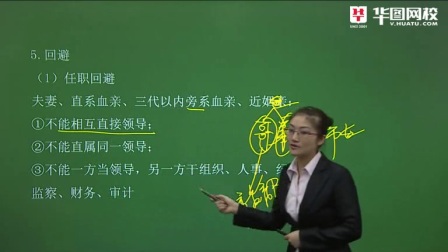 华图网校
V.HUATU.COM
5.回避
（1）任职回避
夫妻、直系血亲、三代以内旁系血亲、近姻亲：
①不能相互直接领导；
②不能直属同一领导；
③不能一方当领导，另一方干组织、人事、纪
监察、财务、审计